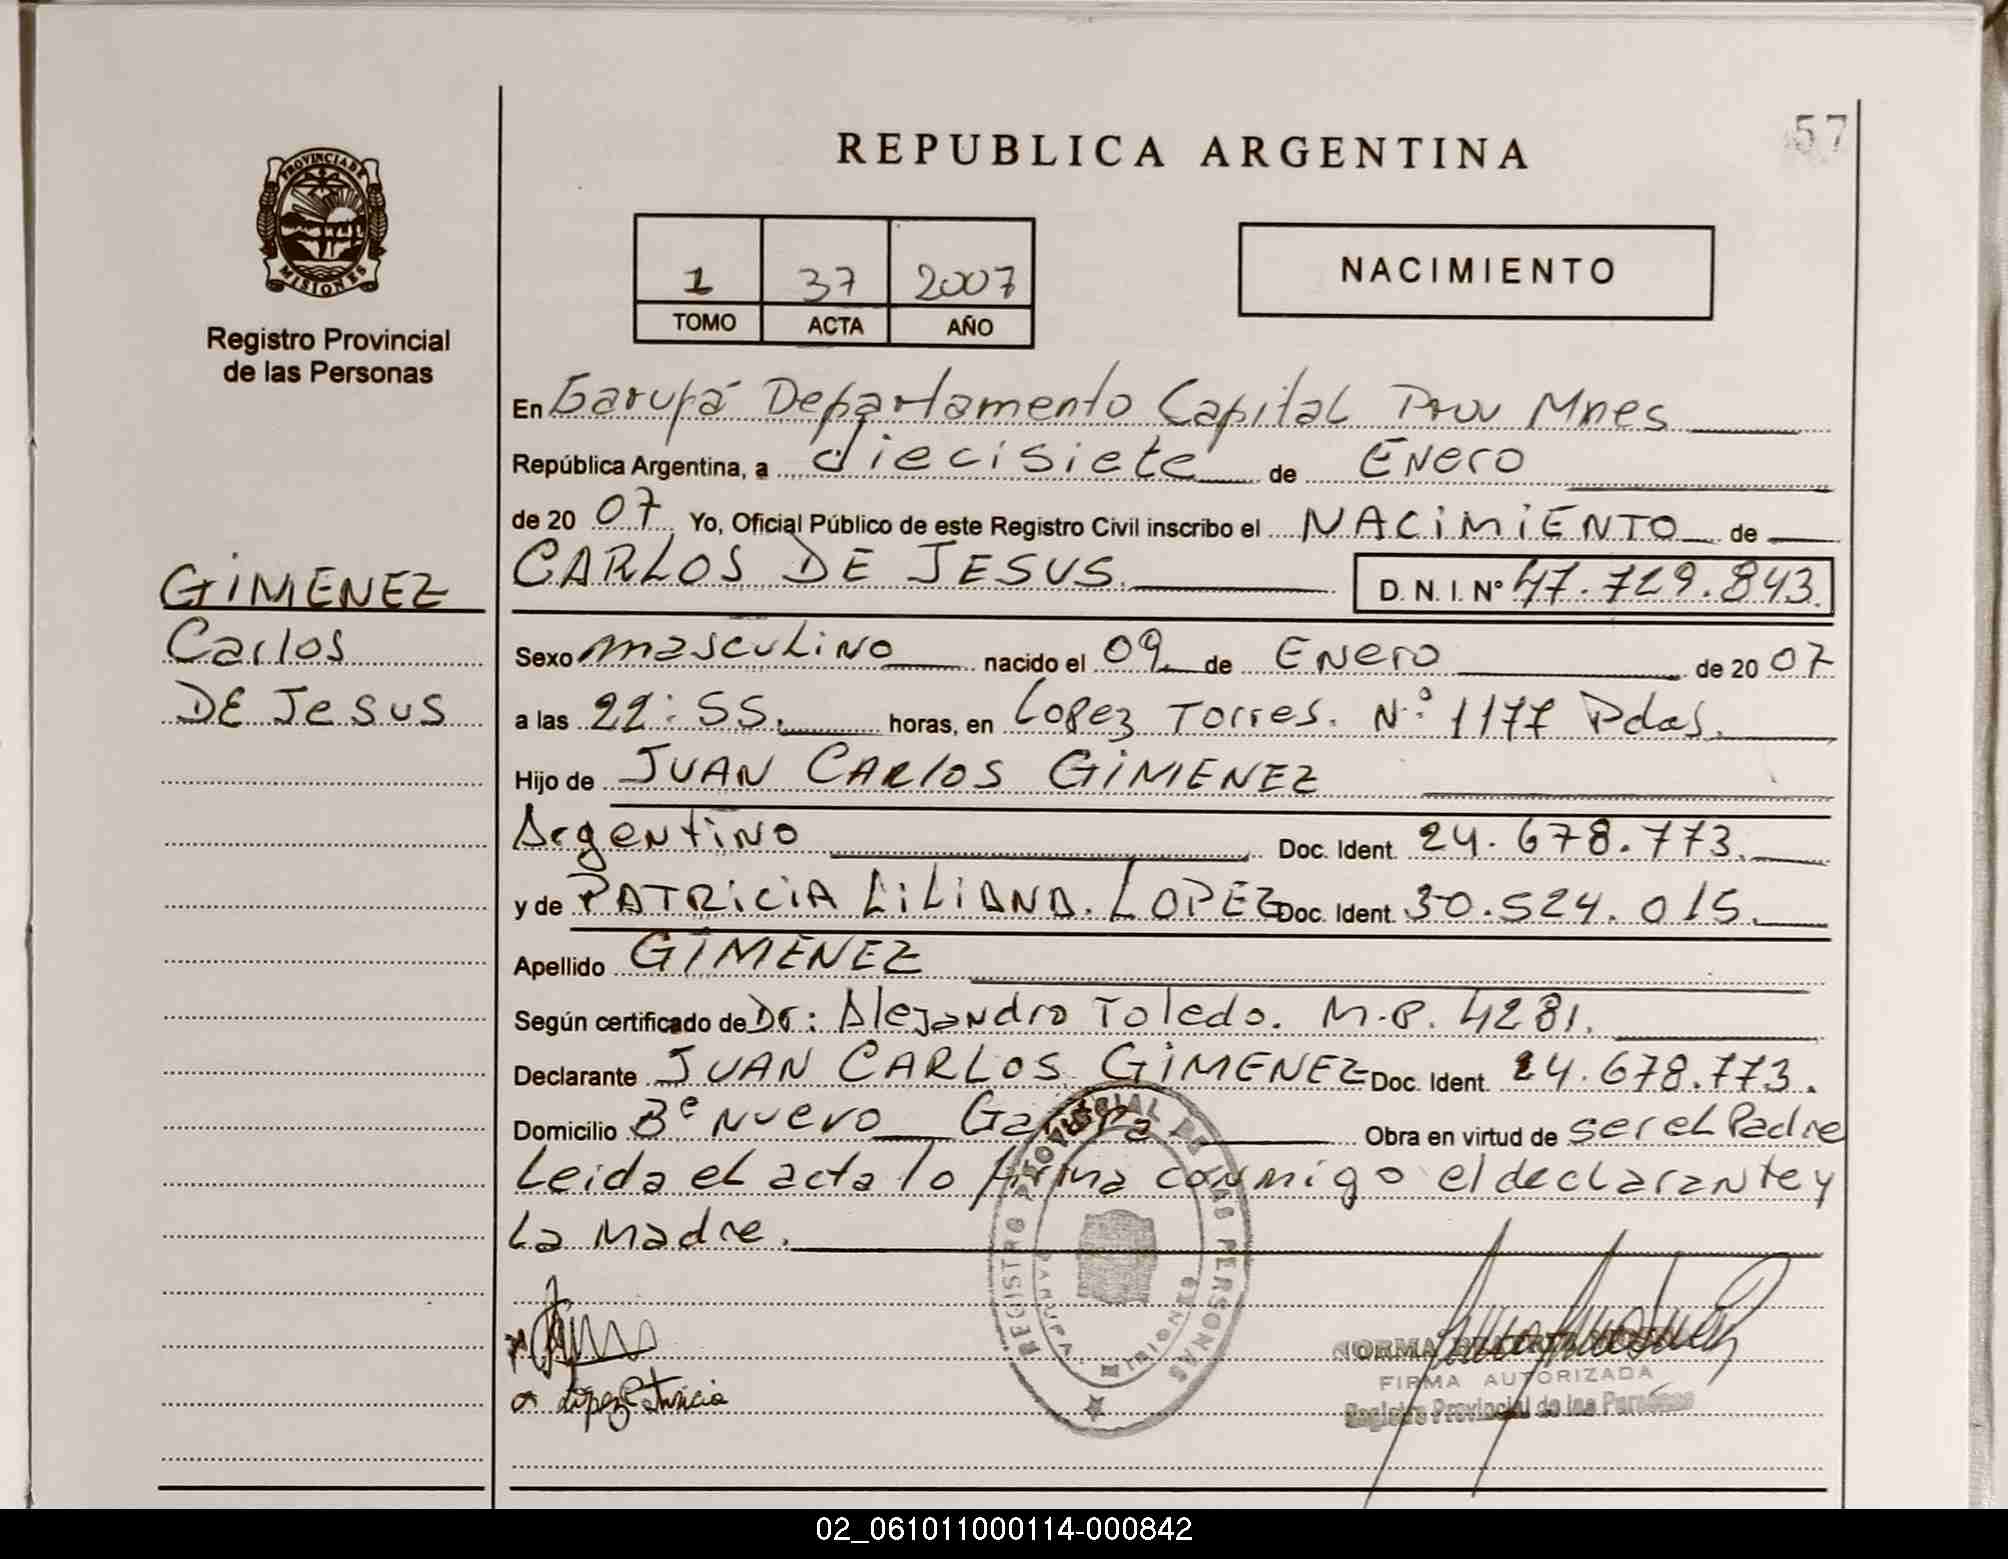 57
REPUBLICA ARGENTINA
PROVINCIA DE
MISIONES
Registro Provincial
de las Personas
1 37 2007
TOMO ACTA AÑO
NACIMIENTO
En Garupá Departamento Capital Prov Mnes
República Argentina, a diecisiete de Enero
de 20 07 Yo, Oficial Público de este Registro Civil inscribo el NACIMIENTO de
CARLOS DE JESUS D. N. I. N° 47.729.843.
GIMENEZ
Carlos
DE Jesus
Sexo masculino nacido el 09 de Enero de 20 07
a las 22:55. horas, en Lopez Torres. N° 1177 Pdas.
Hijo de JUAN CARLOS GIMENEZ
Argentino Doc. Ident. 24.678.773.
y de PATRICIA LILIANA. LOPEZ Doc. Ident. 30.524.015.
Apellido GIMENEZ
Según certificado de Dr: Alejandro Toledo. M.P. 4281.
Declarante JUAN CARLOS GIMENEZ Doc. Ident. 24.678.773.
Domicilio Bº Nuevo Garupa Obra en virtud de ser el Padre
Leida el acta lo firma conmigo el declarante y
La Madre.
REGISTRO PROVINCIAL DE LAS PERSONAS
GARUPA. MISIONES
Lopez Patricia
NORMA
FIRMA AUTORIZADA
Registro Provincial de las Personas
02_061011000114-000842